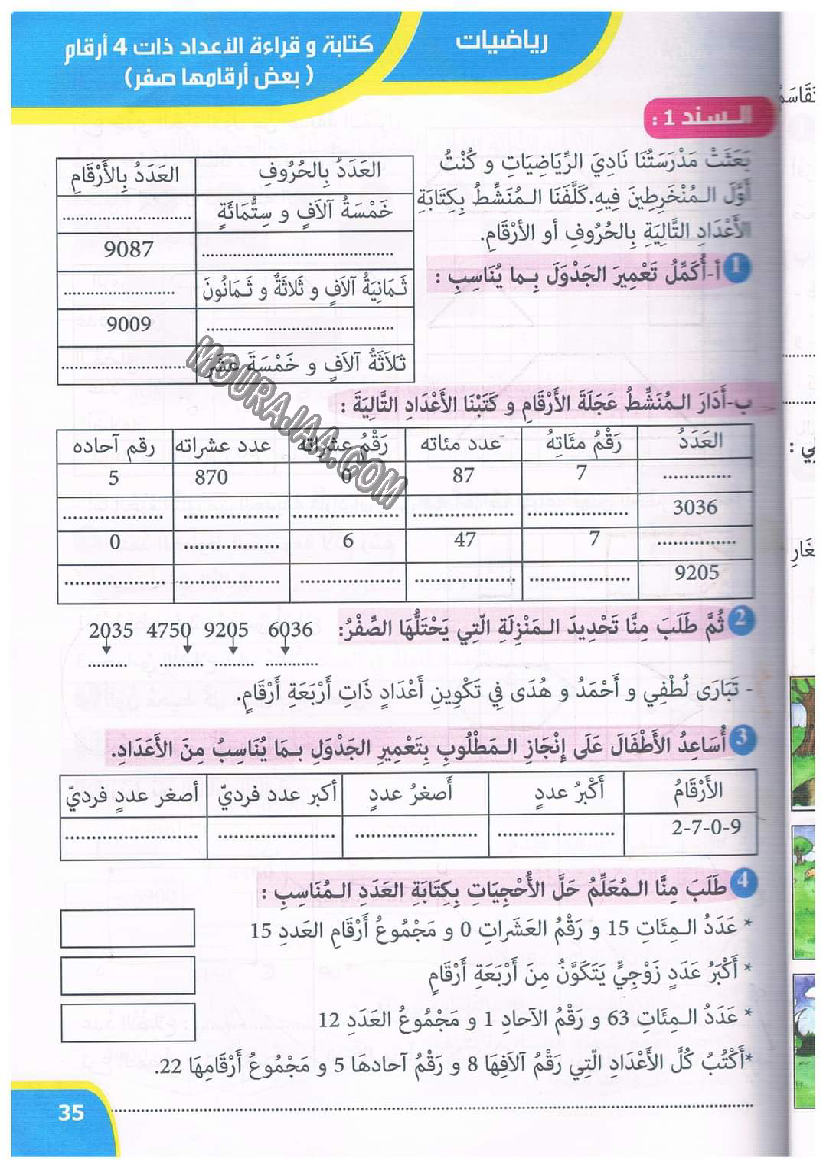 رياضيات
كتابة و قراءة الأعداد ذات 4 أرقام
( بعض أرقامها صفر)
السند 1 :
بَعَثَتْ مَدْرَسَتُنَا نَادِيَ الرِّيَاضِيَاتِ و كُنْتُ
أَوَّلَ الـمُنْخَرِطِينَ فِيهِ.كَلَّفَنَا الـمُنَشِّطُ بِكِتَابَةِ
الأَعْدَادِ التَّالِيَةِ بِالحُرُوفِ أو الأرْقَامِ.
1 أ-أُكَمِّلُ تَعْمِيرَ الجَدْوَلَ بِـما يُنَاسِبِ :
العَدَدُ بِالحُرُوفِ العَدَدُ بِالأَرْقَامِ
خَمْسَةُ آلاَفٍ و سِتُّمَائَةٍ ..........................
.......................................... 9087
ثَـمَانِيَةُ آلاَفٍ و ثَلاَثَةٌ و ثَـمَانُونَ .......................
......................................... 9009
ثَلاَثَةُ آلاَفٍ و خَمْسَةَ عَشَرَ ..........................
ب-أَدَارَ الـمُنَشِّطُ عَجَلَةَ الأَرْقَامِ و كَتَبْنَا الأَعْدَادِ التَّالِيَةَ :
العَدَدُ رَقْمُ مئَاتِهُ عدد مئاته رَقْمُ عشراته عدد عشراته رقم آحاده
.............. 7 87 0 870 5
3036 ..................... ..................... ..................... ..................... .....................
................ 7 47 6 .................... 0
9205 ..................... ..................... ..................... ..................... .....................
2 ثُمَّ طَلَبَ مِنَّا تَحْدِيدَ الـمَنْزِلَةِ الّتِي يَحْتَلُّهَا الصِّفْرُ:
6036 9205 4750 2035
............ ......... ......... .........
- تَبَارَى لُطْفِي و أَحْمَدُ و هُدَى فِي تَكْوِينِ أَعْدَادٍ ذَاتِ أَرْبَعَةِ أَرْقَامٍ.
3 أُسَاعِدُ الأَطْفَالَ عَلَى إِنْجَازِ الـمَطْلُوبِ بِتَعْمِيرِ الجَدْوَلِ بـمَا يُنَاسِبُ مِنَ الأَعْدَادِ.
الأَرْقَامُ أَكْبَرُ عددٍ أَصغرُ عددٍ أكبر عدد فرديّ أصغر عددٍ فرديّ
2-7-0-9 ........................ ........................ ........................ ........................
4 طَلَبَ مِنَّا الـمُعَلِّمُ حَلَّ الأُحْجِيَاتِ بِكِتَابَةِ العَدَدِ الـمُنَاسِبِ :
* عَدَدُ الـمِئَاتِ 15 و رَقْمُ العَشَرَاتِ 0 و مَجْمُوعُ أَرْقَامِ العَددِ 15
* أَكْبَرُ عَدَدٍ زَوْجِيٍّ يَتَكَوَّنُ مِنَ أَرْبَعَةِ أَرْقَامٍ
* عَدَدُ الـمِئَاتِ 63 و رَقْمُ الآحَادِ 1 و مَجْمُوعُ العَدَدِ 12
*أَكْتُبُ كُلَّ الأَعْدَادِ الَّتِي رَقْمُ آلاَفِهَا 8 و رَقْمُ آحادهَا 5 و مَجْمُوعُ أَرْقَامِهَا 22.
..........................................................................................
35
MOURAJAA.COM